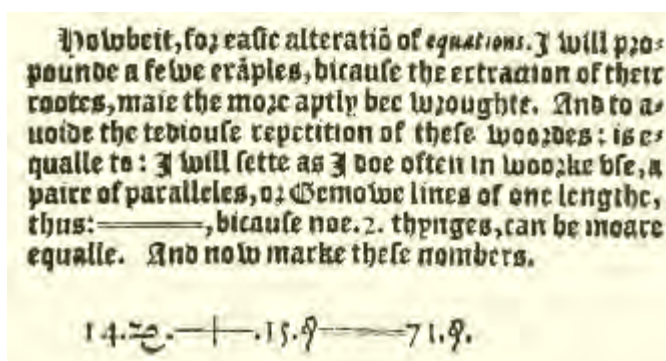 Howbeit, for easie alteratiõ of equations. I will pro-
pounde a fewe exãples, bicause the extraction of their
rootes, maie the more aptly bee wroughte. And to a-
uoide the tediouse repetition of these woordes: is e-
qualle to: I will sette as I doe often in woorke vse, a
paire of paralleles, or Gemowe lines of one lengthe,
thus: ═════, bicause noe .2. thynges, can be moare
equalle. And now marke these nombers.
14. .—|—.15. ═════71. .